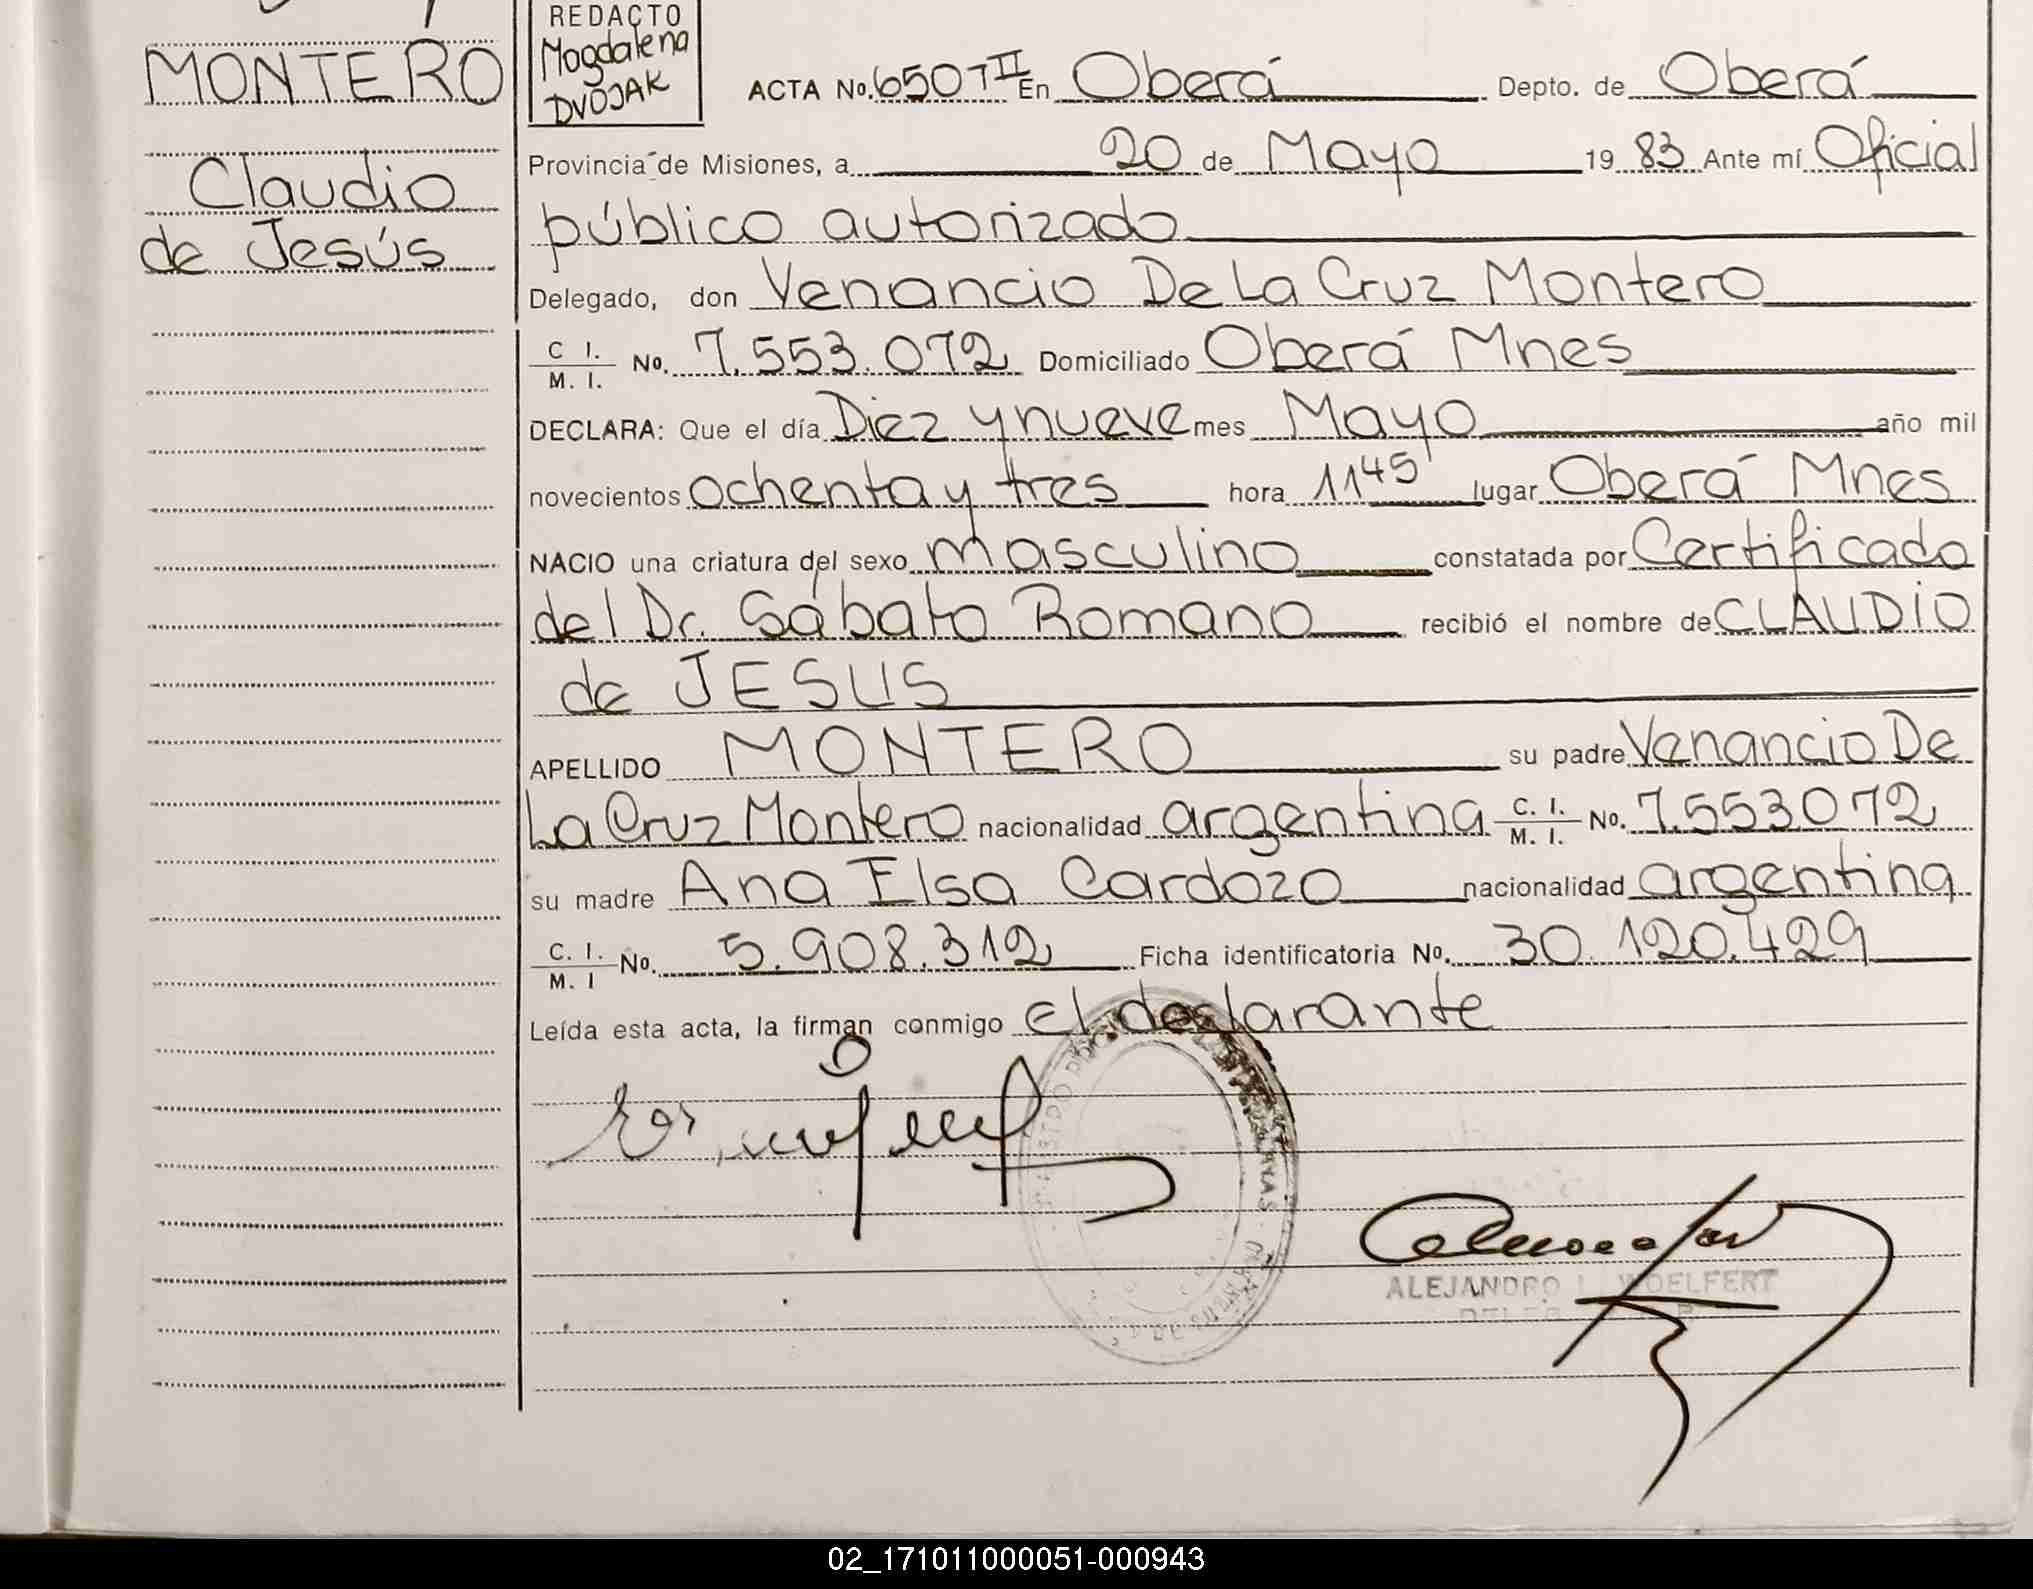 MONTERO
Claudio
de Jesús
REDACTO
Magdalena
DVOJAK
ACTA No. 650 T II En Oberá Depto. de Oberá
Provincia de Misiones, a 20 de Mayo 19 83 Ante mí Oficial
público autorizado
Delegado, don Venancio De La Cruz Montero
C I. / M. I. No. 7.553.072 Domiciliado Oberá Mnes
DECLARA: Que el día Diez y nueve mes Mayo año mil
novecientos ochenta y tres hora 11 45' lugar Oberá Mnes
NACIO una criatura del sexo masculino constatada por Certificado
del Dr. Sábato Romano recibió el nombre de CLAUDIO
de JESUS
APELLIDO MONTERO su padre Venancio De
La Cruz Montero nacionalidad argentina C. I. / M. I. No. 7.553072
su madre Ana Elsa Cardozo nacionalidad argentina
C. I. / M. I No. 5.908.312 Ficha identificatoria No. 30.120.429
Leída esta acta, la firman conmigo El declarante
ALEJANDRO WOELFERT
02_171011000051-000943